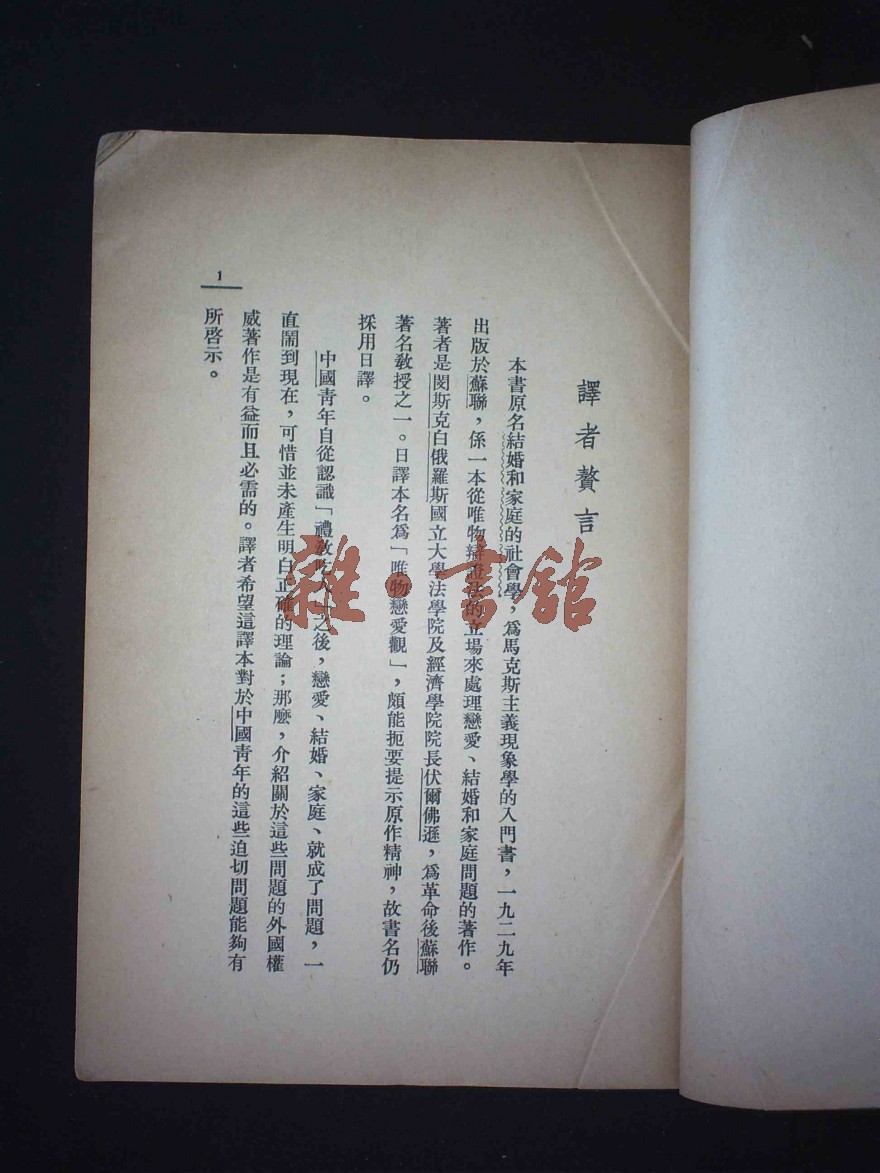 譯者贅言
本書原名結婚和家庭的社會學，爲馬克斯主義現象學的入門書，一九二九年
出版於蘇聯，係一本從唯物辯證法的立場來處理戀愛、結婚和家庭問題的著作。
著者是閔斯克白俄羅斯國立大學法學院及經濟學院院長伏爾佛遜，爲革命後蘇聯
著名教授之一。日譯本名爲「唯物戀愛觀」，頗能扼要提示原作精神，故書名仍
採用日譯。
中國青年自從認識「禮教吃人」之後，戀愛、結婚、家庭、就成了問題，一
直鬧到現在，可惜並未產生明白正確的理論；那麼，介紹關於這些問題的外國權
威著作是有益而且必需的。譯者希望這譯本對於中國青年的這些迫切問題能夠有
所啓示。
1
雜·書館